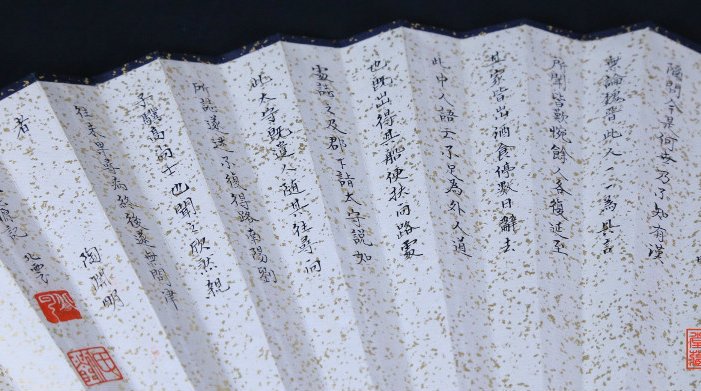 隔問今是何世乃不知有漢
無論魏晉此人一一為具言
所聞皆歎惋餘人各復延至
其家皆出酒食停數日辭去
此中人語云不足為外人道
也既出得其船便扶向路處
處誌之及郡下詣太守説如
此太守既遣人隨其往尋向
所誌遂迷不復得路南陽劉
子驥高尚士也聞之欣然親
往未果尋病終後遂無問津
者 陶淵明
源記